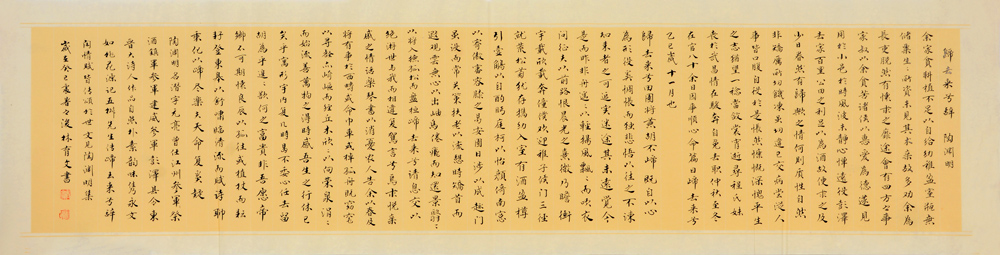 歸去來兮辭 陶淵明
余家貧耕植不足以自給幼稚盈室缾無
儲粟生生所資未見其术親故多勸余為
長吏脫然有懷求之靡途會有四方之事
家叔以余貧苦諸侯以惠愛為德遂見
用於小邑于時風波未靜心憚遠役彭澤
去家百里公田之利足以為酒故便求之及
少日眷然有歸歟之情何則質性自然
非矯厲所得飢凍雖切違己交病嘗從人
事皆口腹自役於是悵然慷慨深愧平生
之志猶望一稔當斂裳宵逝尋程氏妹
喪於武昌情在駿奔自免去職仲秋至冬
在官八十餘日因事順心命篇曰歸去來兮
乙巳歲十一月也
歸去來兮田園將蕪胡不歸既自以心
為形役奚惆悵而獨悲悟以往之不諫
知來者之可追實迷途其未遠覺今
是而昨非舟遙遙以輕颺風飄飄而吹衣
問征夫以前路恨晨光之熹微乃瞻衡
宇載欣載奔僮僕歡迎稚子候門三徑
就荒松菊猶存攜幼入室有酒盈樽
引壺觴以自酌眄庭柯以怡顏倚南窗
以寄傲審容膝之易安園日涉以成趣門
雖設而常關策扶老以流憩時矯首而
遐觀雲無心以出岫鳥倦飛而知還景翳翳
以將入撫孤松而盤桓歸去來兮請息交以
絕游世與我而相違復駕言兮焉求悅親
戚之情話樂琴書以消憂農人告余以春及
將有事於西疇或命巾車或棹孤舟既窈窕
以尋壑亦崎嶇而經丘木欣欣以向榮泉涓涓
而始流善萬物之得時感吾生之行休已
矣乎寓形宇內復幾時曷不委心任去留
胡為乎遑遑欲何之富貴非吾願帝
鄉不可期懷良辰以孤往或植杖而耘
耔登東皋以舒嘯臨清流而賦詩聊
乘化以歸盡樂夫天命復奚疑
陶淵明名潛字元亮曾任江州祭軍祭
酒鎮軍參軍建威參軍彭澤縣令東
晉大詩人作品自然朴素韵味雋永文
如桃花源記五柳先生傳歸去來兮辭
閑情賦皆傳頌於世文見陶淵明集
歲在癸巳夏香 林育文書